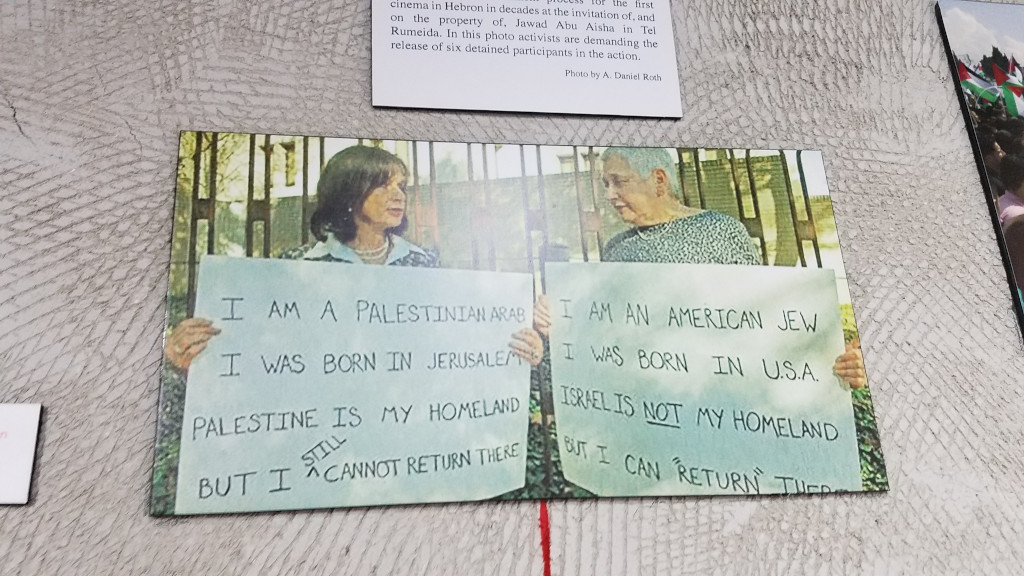 process for the first
cinema in Hebron in decades at the invitation of, and
on the property of, Jawad Abu Aisha in Tel
Rumeida. In this photo activists are demanding the
release of six detained participants in the action.
Photo by A. Daniel Roth
I AM A PALESTINIAN ARAB
I WAS BORN IN JERUSALEM
PALESTINE IS MY HOMELAND
BUT I STILL CANNOT RETURN THERE
I AM AN AMERICAN JEW
I WAS BORN IN U.S.A.
ISRAEL IS NOT MY HOMELAND
BUT I CAN "RETURN" THERE